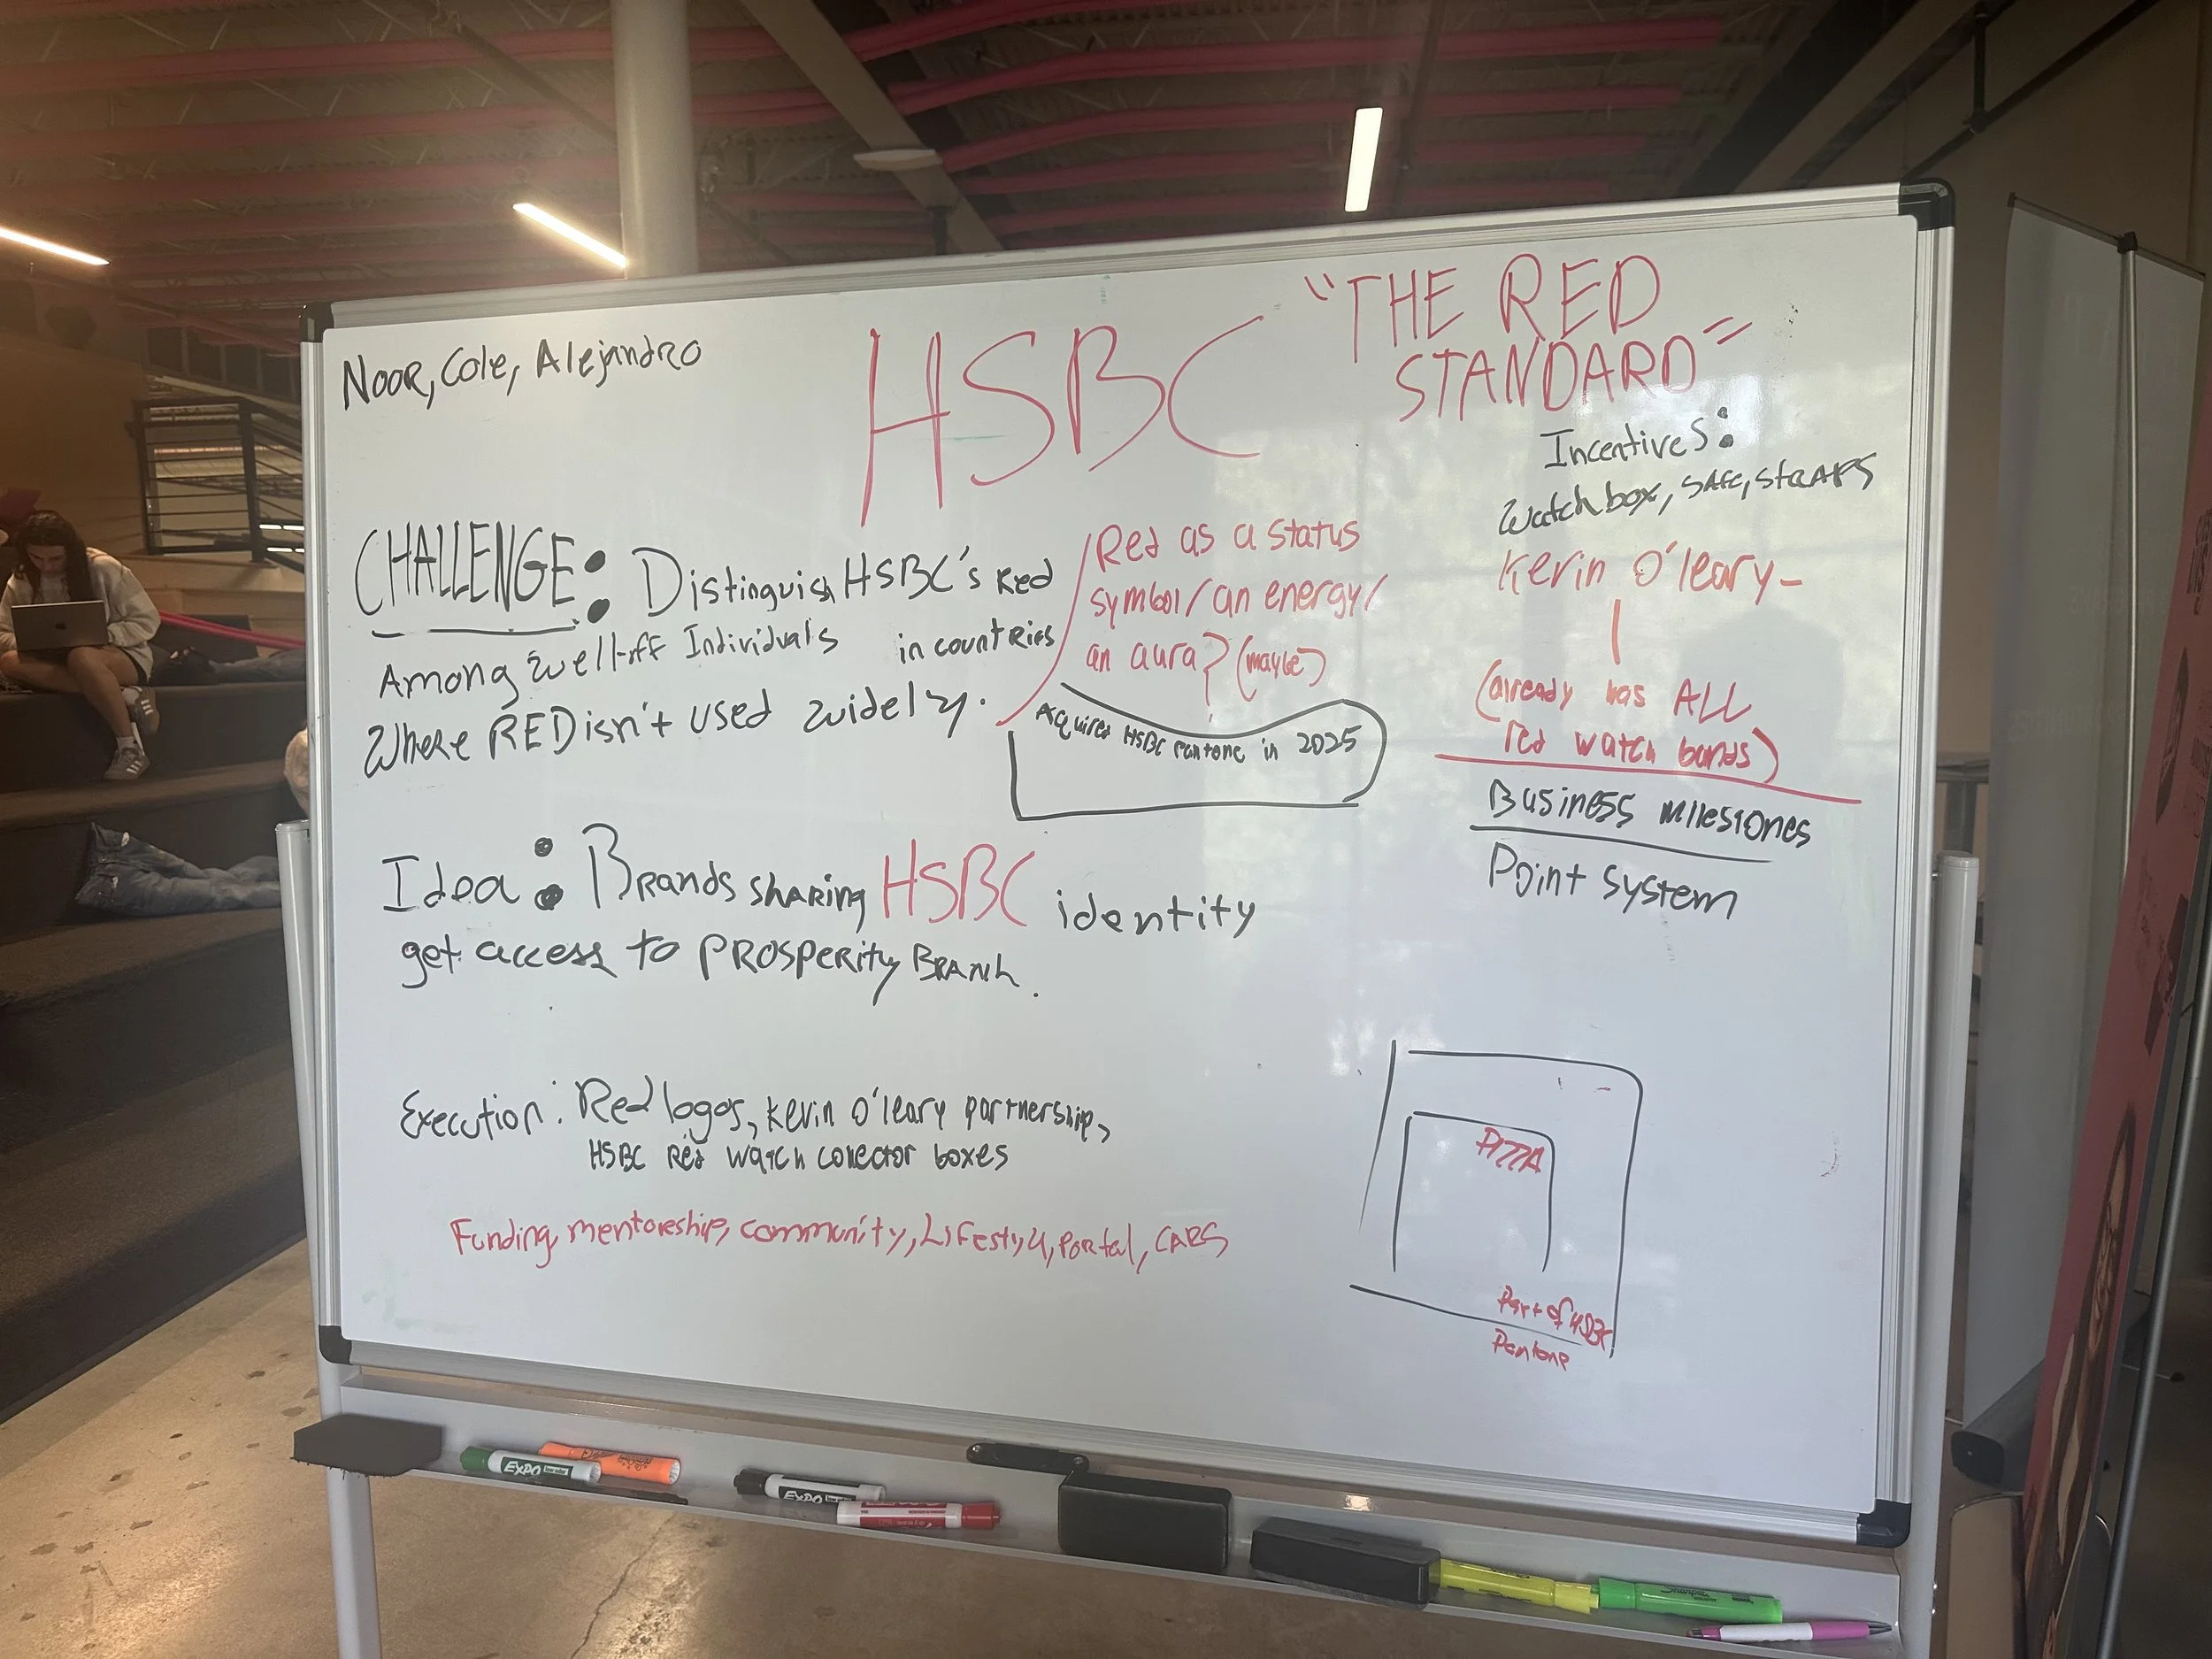 Noor, Cole, Alejandro
HSBC
"THE RED
STANDARD"
Incentives:
Watch box, SAFE, STRAPS
Kevin O'leary-
(already has ALL
red watch bands)
Business Milestones
Point System
CHALLENGE: Distinguish HSBC's Red
Among well-off Individuals in countries
Where RED isn't used widely.
Red as a status
symbol/an energy/
an aura? (maybe)
Acquired HSBC pantone in 2025
Idea: Brands sharing HSBC identity
get access to PROSPERITY BRANH.
Execution: Red logos, Kevin O'leary partnership,
HSBC Red watch collector boxes
Funding, mentoreship, community, Lifestyl, Portal, CARS
PIZZA
Part of HSBC
Pantone
EXPO
EXPO
Sharpie